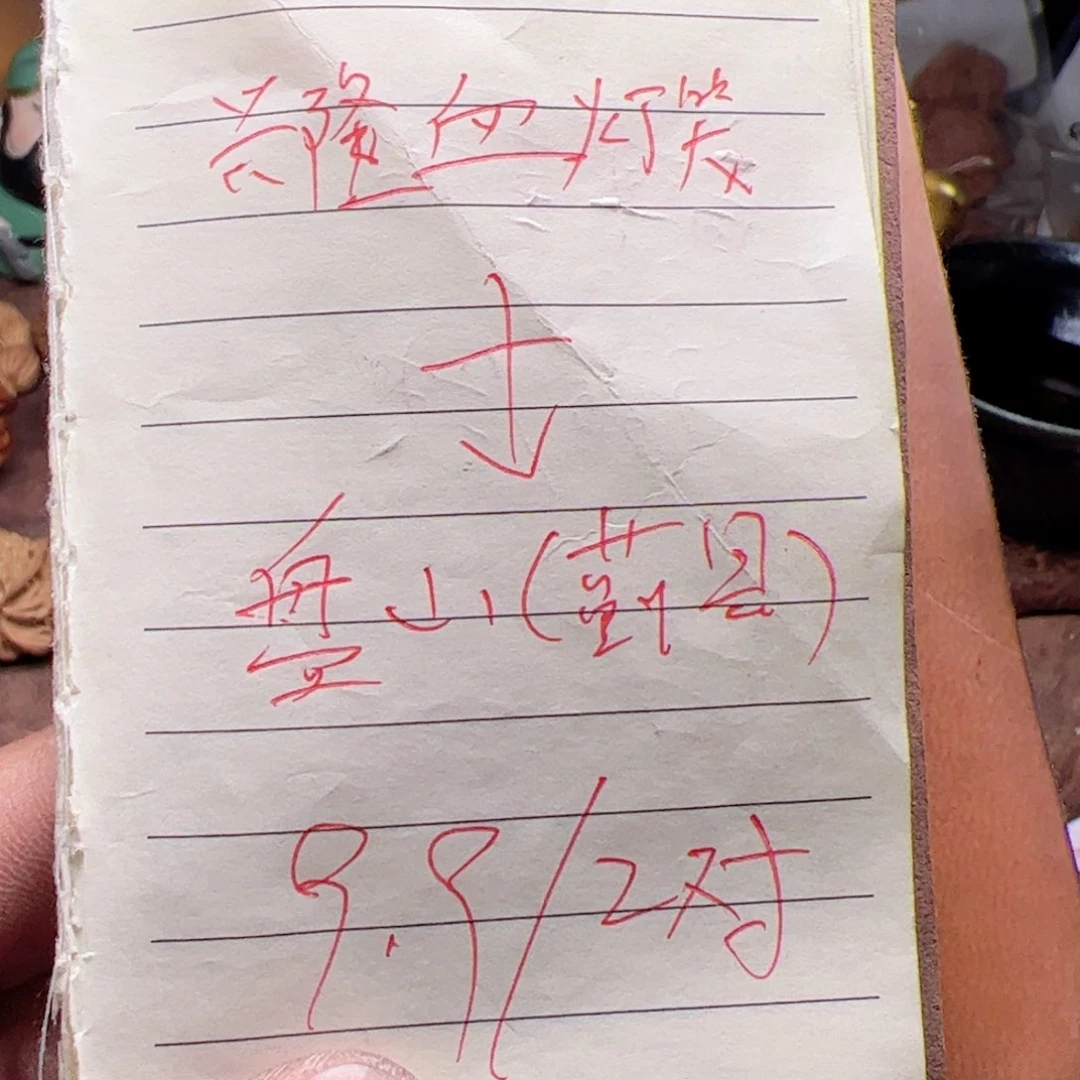 兴隆四灯笼
盘山(蓟县)
9.9/2对